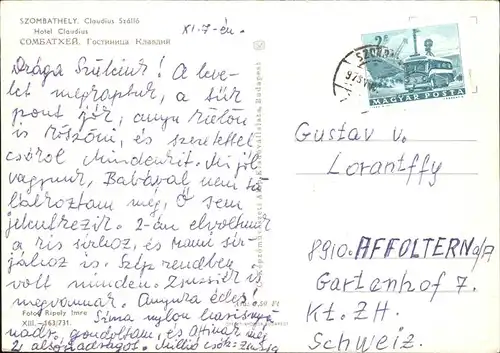 SZOMBATHELY. Claudius Szálló
Hotel Claudius
СОМБАТХЕЙ. Гостиница Клавдий
XI. 7-én.
Drága Szüleim! A leve-
let megkaptuk, a
pont jó, anyu
is köszöni, és szeretettel
csókol Mindenkit. Mi jól
vagyunk, Babával nem ta-
lálkoztam még, Ő sem
jelentkezik. 2-án elvoltunk
a kis sírhoz, és Mami sír-
jához is. Szép rendben
volt minden.
megvannak. Anyura
Sima nylon harisnya
nadr. gondoltam, és
Millió csók:
Fotó: Ripoly Imre
XIII.—163/731.
Képzőművészeti Alap Kiadóvállalata, Budapest
2 Ft
MAGYAR POSTA
SZOMB
Gustav v.
Lorantffy
8910. AFFOLTERN a/A
Gartenhof 7.
Kt. ZH.
Schweiz.